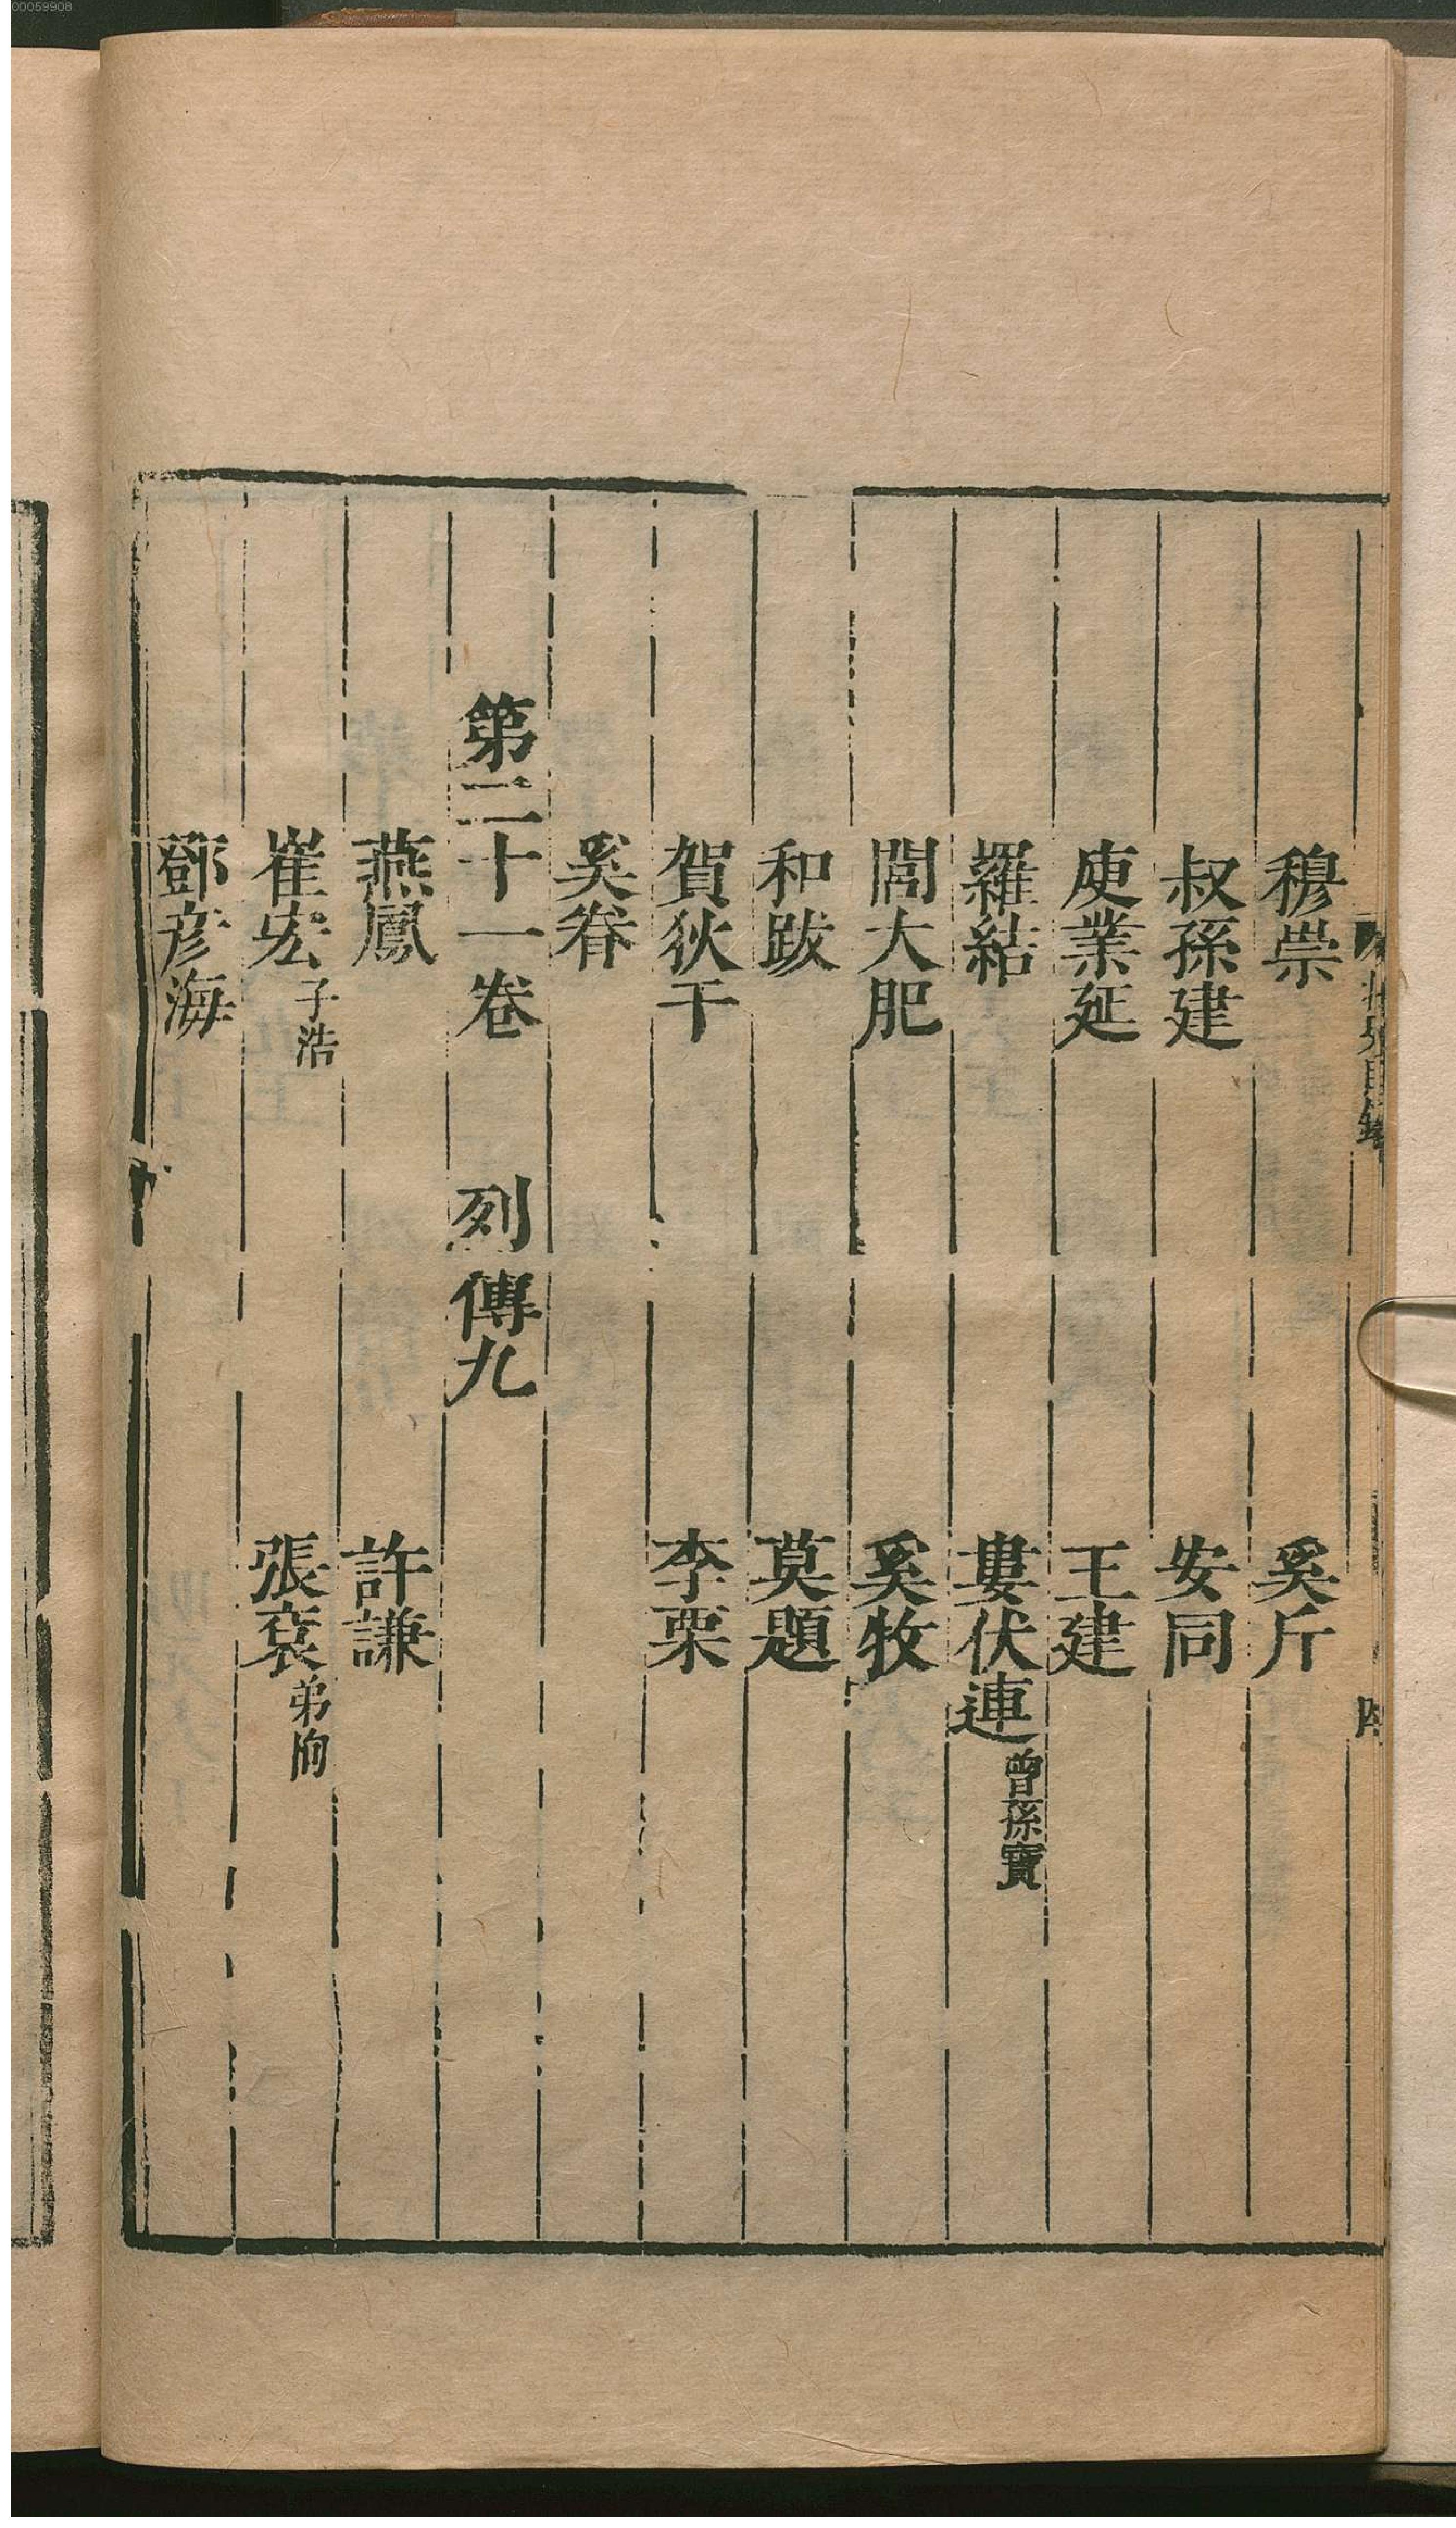 00059908
穆崇　奚斤
叔孫建　安同
庾業延　王建
羅結　婁伏連曾孫寶
閭大肥　奚牧
和跋　莫題
賀狄干　李栗
奚眷
第二十一卷　列傳九
燕鳳　許謙
崔宏子浩　張袞弟恂
鄧彦海
北史目錄